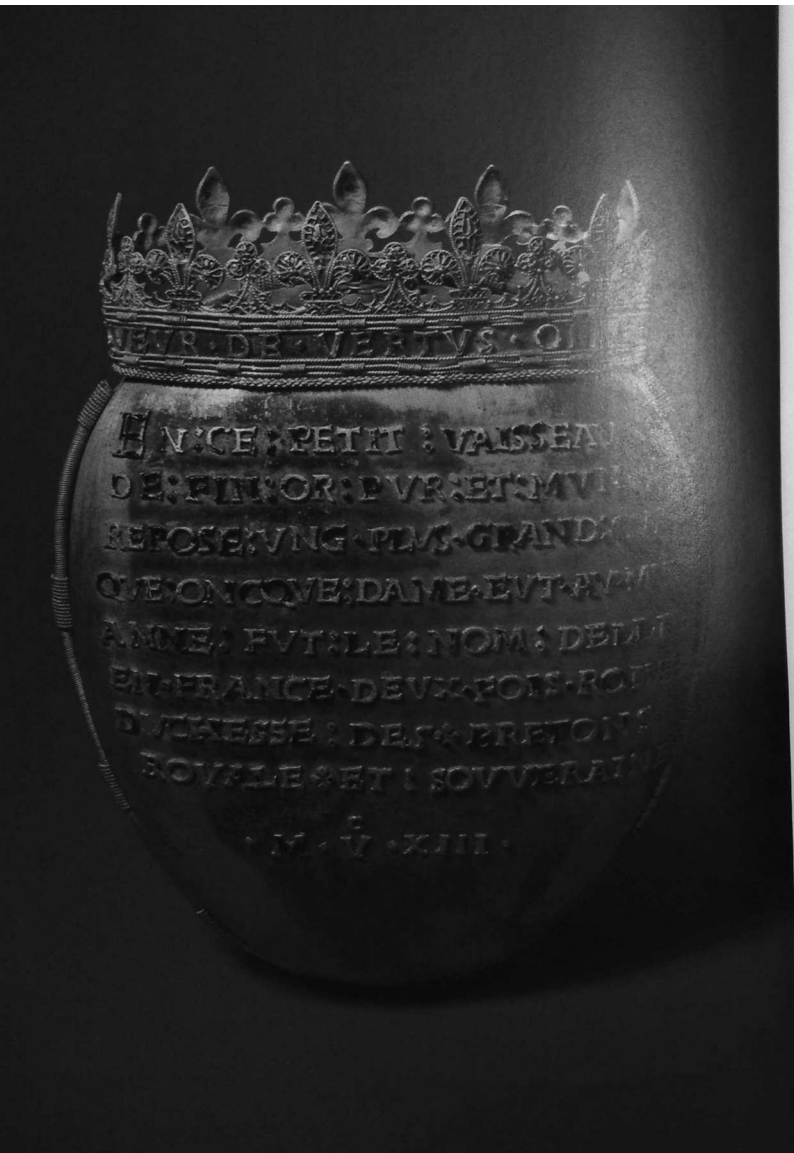 DE · VERTVS ·
EN : CE : PETIT : VAISSEA
DE : FIN : OR : PVR : ET : MVN
REPOSE : VNG · PLVS · GRAND :
QVE : ONCQVE : DAME · EVT · AV · M
ANNE : FVT : LE : NOM : DELLE
EN · FRANCE · DEVX · FOIS · ROINE
DVCHESSE : DES : BRETONS
ROYALE : ET : SOVVERAINE
· M · V · XIII ·
c